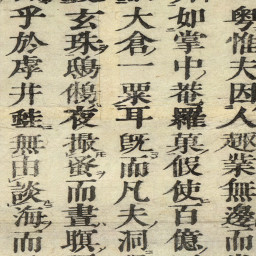 惟夫因人趣業無邊而
如掌中菴羅菓假使百億
大倉一粟耳既而凡夫洞
玄珠鴟鵂夜撮蚤而晝瞑
乎於虖井蛙無由談海而